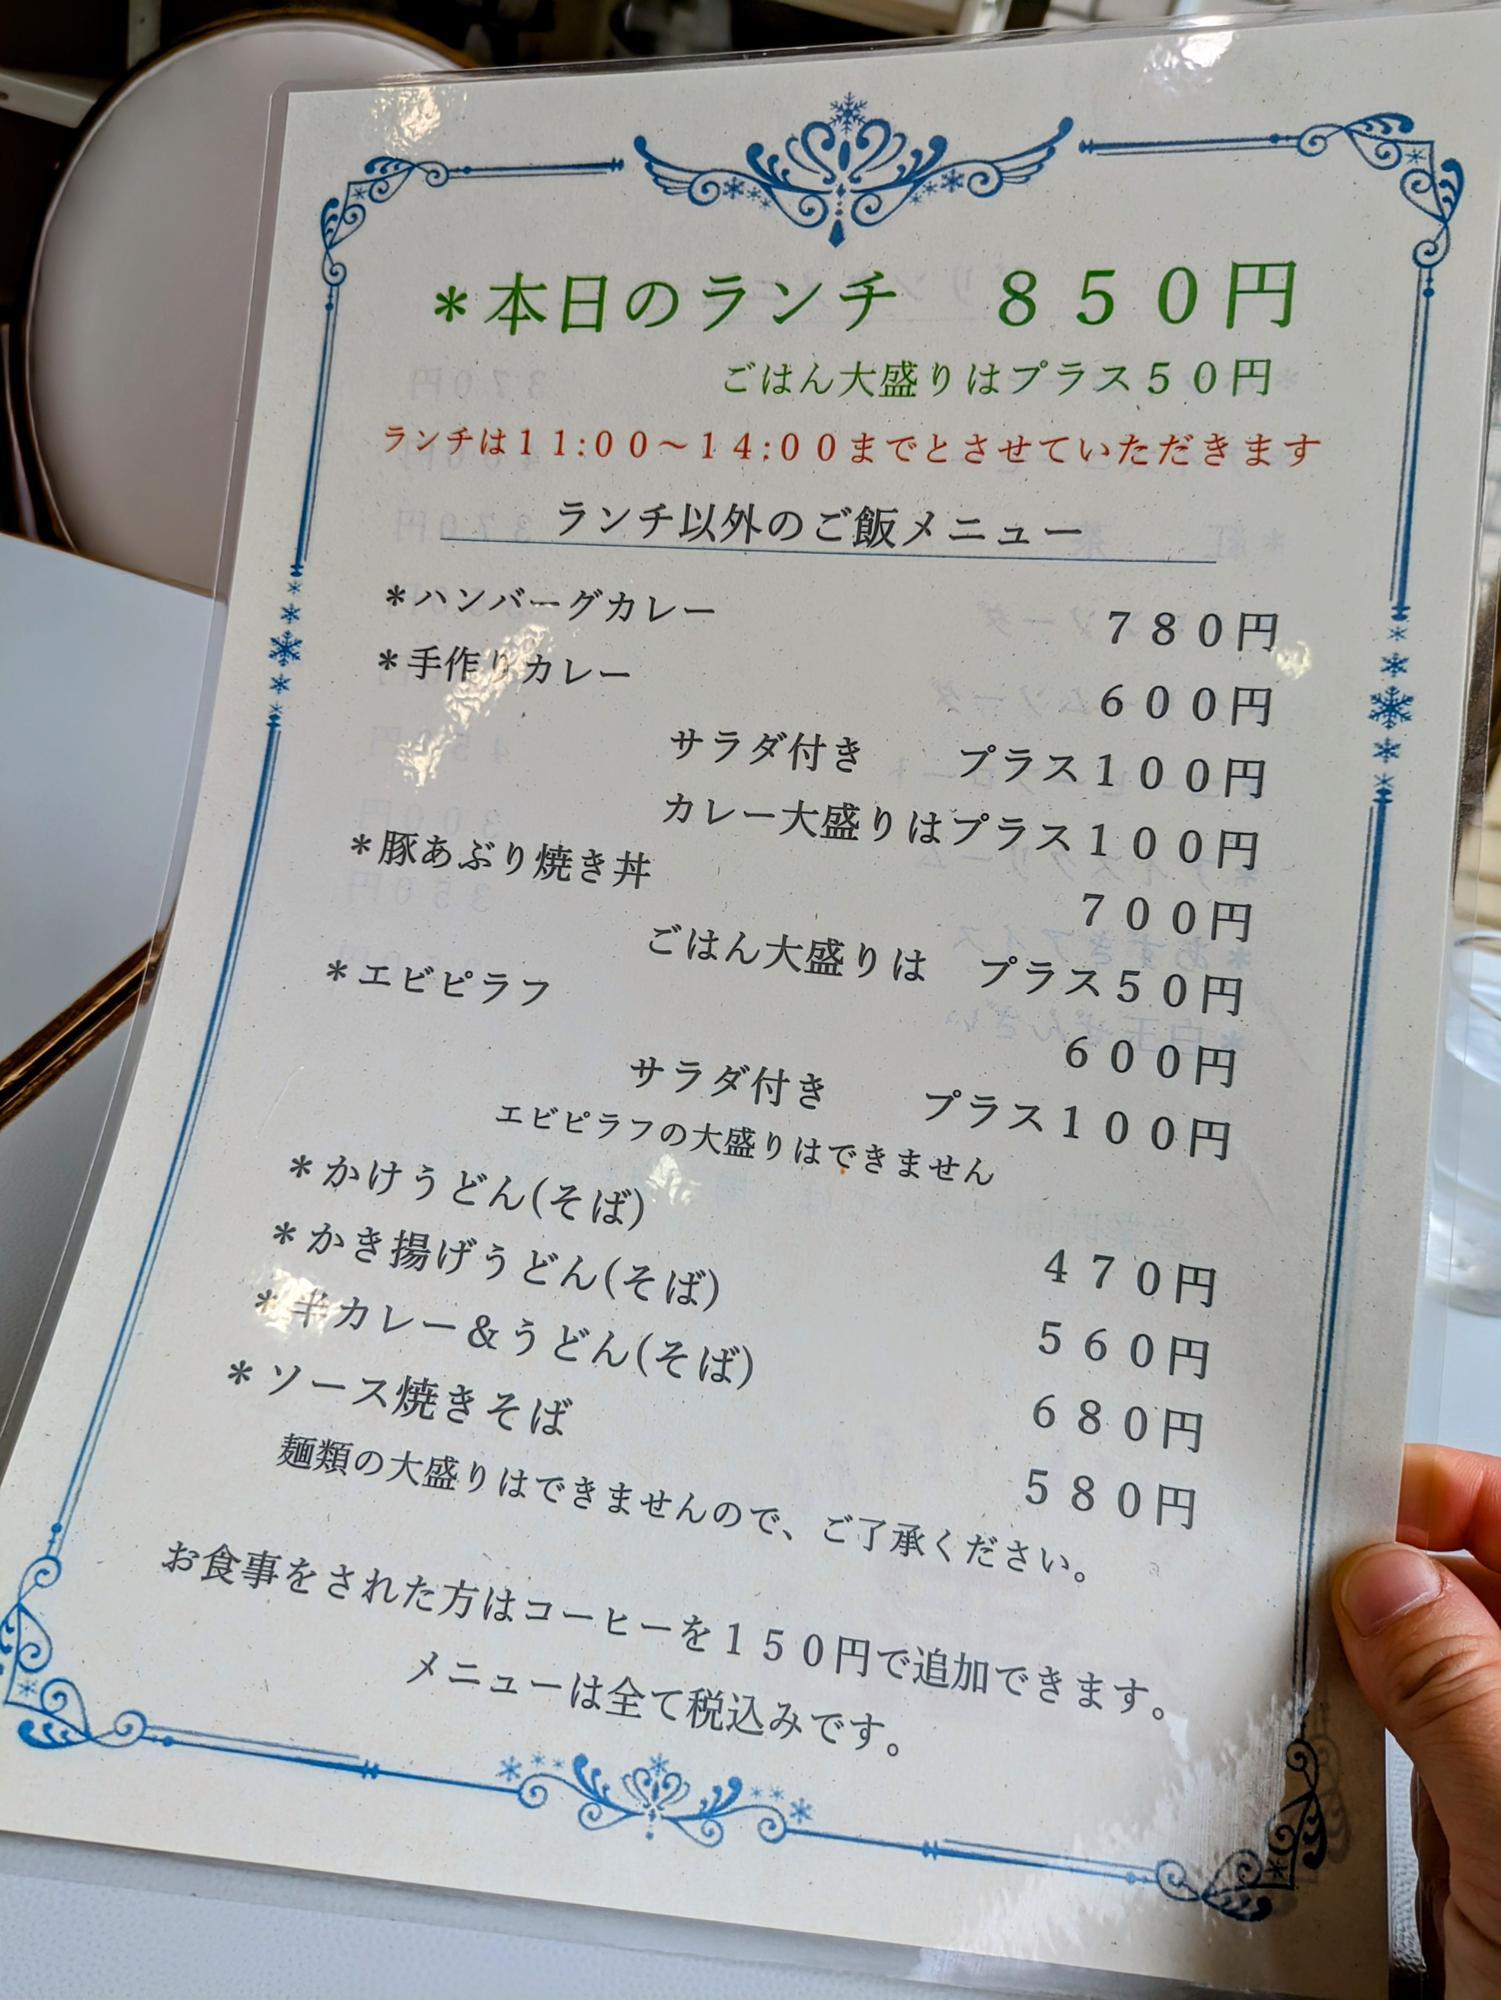 ＊本日のランチ　８５０円
ごはん大盛りはプラス５０円
ランチは１１:００～１４:００までとさせていただきます
ランチ以外のご飯メニュー
＊ハンバーグカレー　７８０円
＊手作りカレー　６００円
サラダ付き　プラス１００円
カレー大盛りはプラス１００円
＊豚あぶり焼き丼　７００円
ごはん大盛りは　プラス５０円
＊エビピラフ　６００円
サラダ付き　プラス１００円
エビピラフの大盛りはできません
＊かけうどん(そば)　４７０円
＊かき揚げうどん(そば)　５６０円
＊半カレー＆うどん(そば)　６８０円
＊ソース焼きそば　５８０円
麺類の大盛りはできませんので、ご了承ください。
お食事をされた方はコーヒーを１５０円で追加できます。
メニューは全て税込みです。